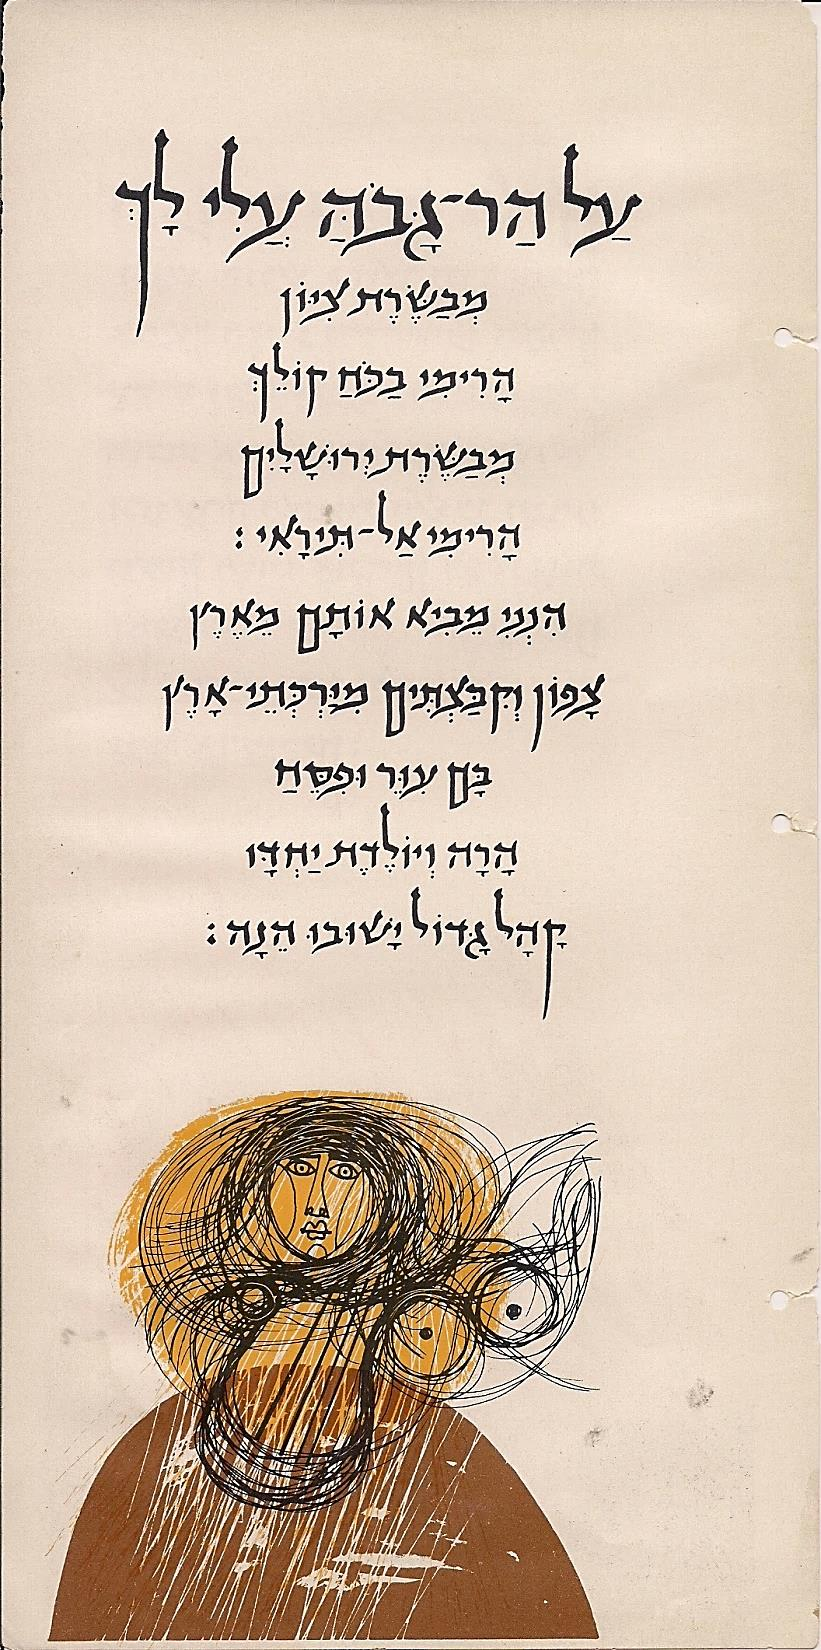 עַל הַר־גָּבֹהַּ עֲלִי לָךְ
מְבַשֶּׂרֶת צִיּוֹן
הָרִימִי בַכֹּחַ קוֹלֵךְ
מְבַשֶּׂרֶת יְרוּשָׁלָיִם
הָרִימִי אַל-תִּירָאִי :
הִנְנִי מֵבִיא אוֹתָם מֵאֶרֶץ
צָפוֹן וְקִבַּצְתִּים מִיַּרְכְּתֵי-אָרֶץ
בָּם עִוֵּר וּפִסֵּחַ
הָרָה וְיוֹלֶדֶת יַחְדָּו
קָהָל גָּדוֹל יָשׁוּבוּ הֵנָּה :